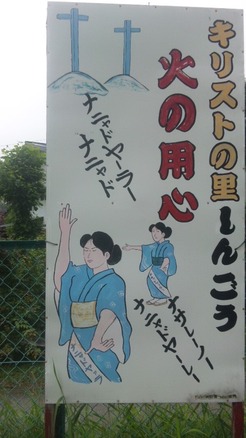 キリストの里しんごう
火の用心
ナニャドヤーラー
ナニャド
ナサレーノー
ナニャドヤーレー